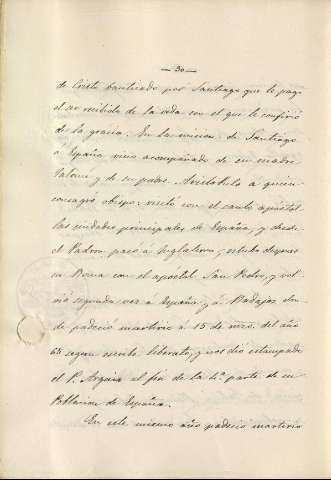 — 30 —
de Cristo bautizado por Santiago que le pagó
el ser recibido de la vida con el que le confirió
de la gracia. En la mision de Santiago
á España vino acompañado de su madre
Salomé y de su padre Aristobulo á quien
consagró obispo: visitó con el santo apóstol
las ciudades principales de España, y desde
el Padron pasó á Inglaterra; estubo despues
en Roma con el apostol San Pedro, y vol-
vió segunda vez á España y á Badajoz don-
de padeció martirio á 15 de mzo. del año
65 segun escribe liberato, y nos dió estampado
el P. Argaiz al fin de la 1ª parte de su
Poblacion de España.
En este mismo año padeció martirio